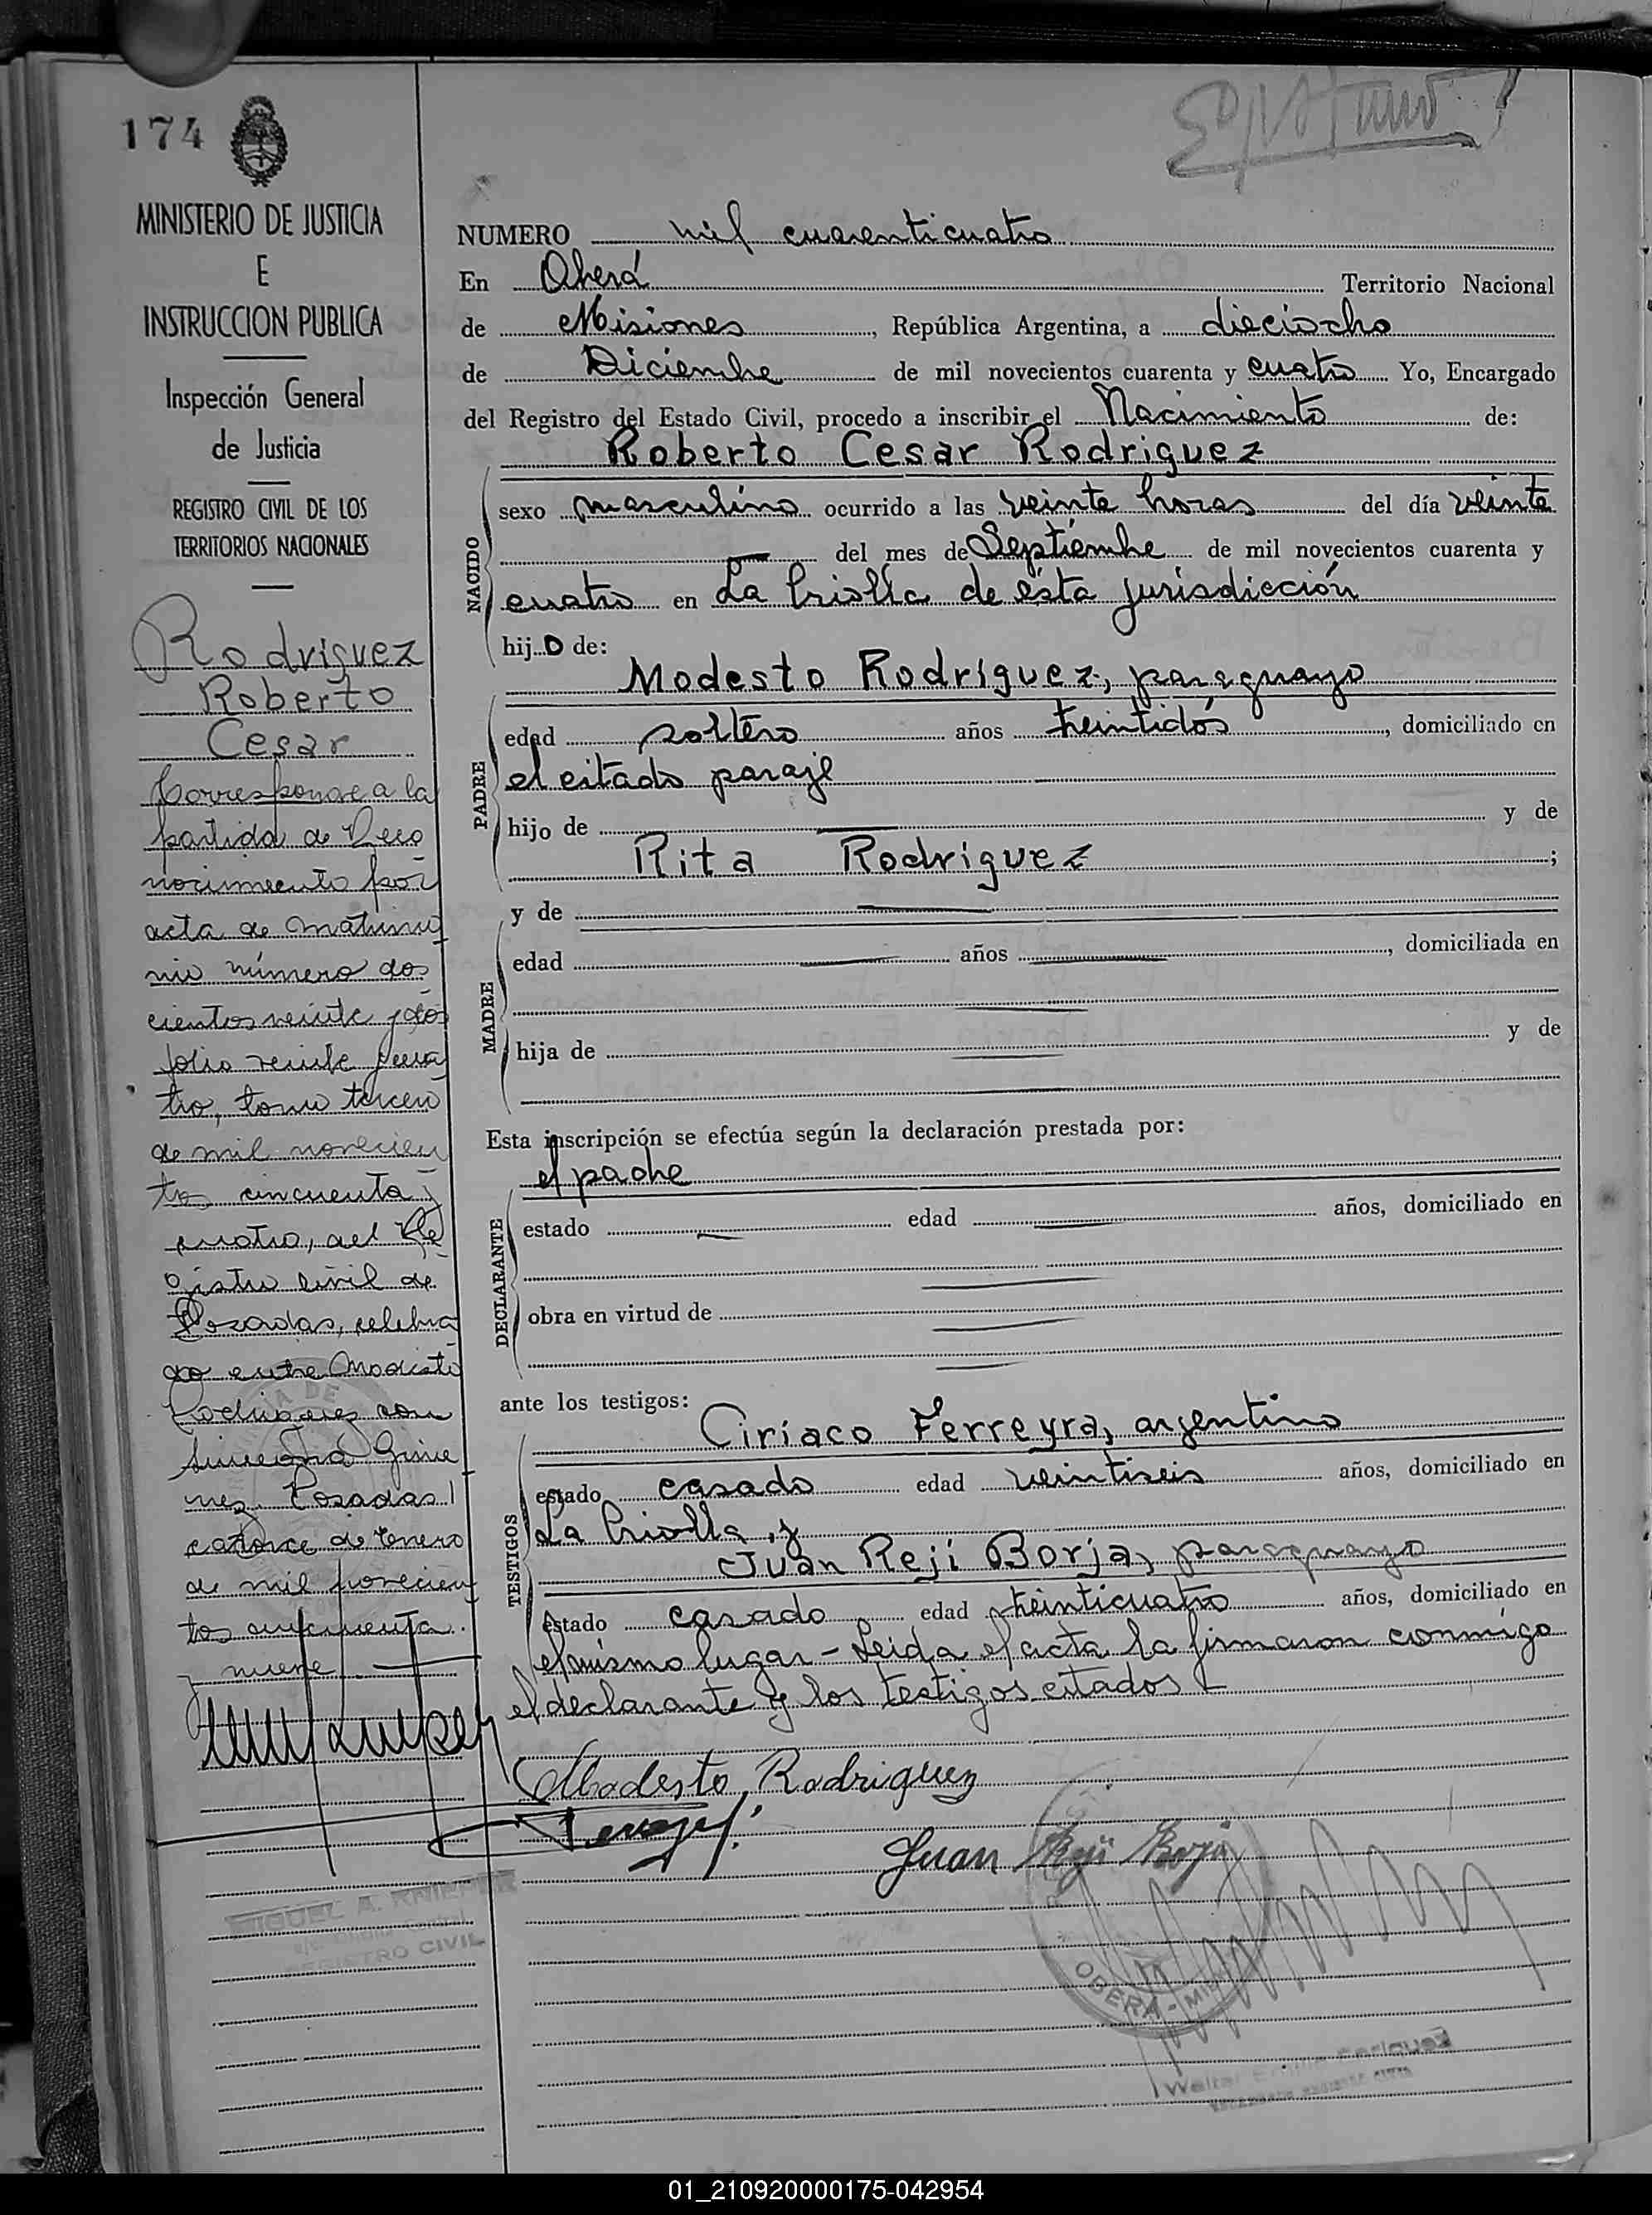 174
MINISTERIO DE JUSTICIA
E
INSTRUCCION PUBLICA
Inspección General
de Justicia
REGISTRO CIVIL DE LOS
TERRITORIOS NACIONALES
Rodriguez
Roberto
Cesar
Corresponde a la
partida de Reco
nocimiento por
acta de matrimo
nio número dos
cientos veinte y dos
folio veinte y cua
tro, tomo tercero
de mil novecien
tos cincuenta y
cuatro, del Re
gistro Civil de
Posadas, celebra
do entre Modesto
Rodriguez con
Gime
nez. Posadas
catorce de Enero
de mil novecien
tos cincuenta
y nueve
MIGUEL A. KNIEPER
REGISTRO CIVIL
NUMERO mil cuarenticuatro
En Oberá Territorio Nacional
de Misiones, República Argentina, a dieciocho
de Diciembre de mil novecientos cuarenta y cuatro Yo, Encargado
del Registro del Estado Civil, procedo a inscribir el Nacimiento de:
Roberto Cesar Rodriguez
NACIDO
sexo masculino ocurrido a las veinte horas del día veinte
del mes de Septiembre de mil novecientos cuarenta y
cuatro en La Criolla de ésta jurisdicción
hijo de:
Modesto Rodríguez, paraguayo
PADRE
edad soltero años treintidós, domiciliado en
el citado paraje
hijo de y de
Rita Rodriguez;
y de
MADRE
edad años, domiciliada en
hija de y de
Esta inscripción se efectúa según la declaración prestada por:
el padre
DECLARANTE
estado edad años, domiciliado en
obra en virtud de
ante los testigos:
Ciríaco Ferreyra, argentino
TESTIGOS
estado casado edad veintiseis años, domiciliado en
La Criolla, y
Juan Reji Borja, paraguayo
estado casado edad treinticuatro años, domiciliado en
el mismo lugar - Leida el acta la firmaron conmigo
el declarante y los testigos citados
Modesto Rodriguez
Juan Reji Borja
OBERA - MI
01_210920000175-042954